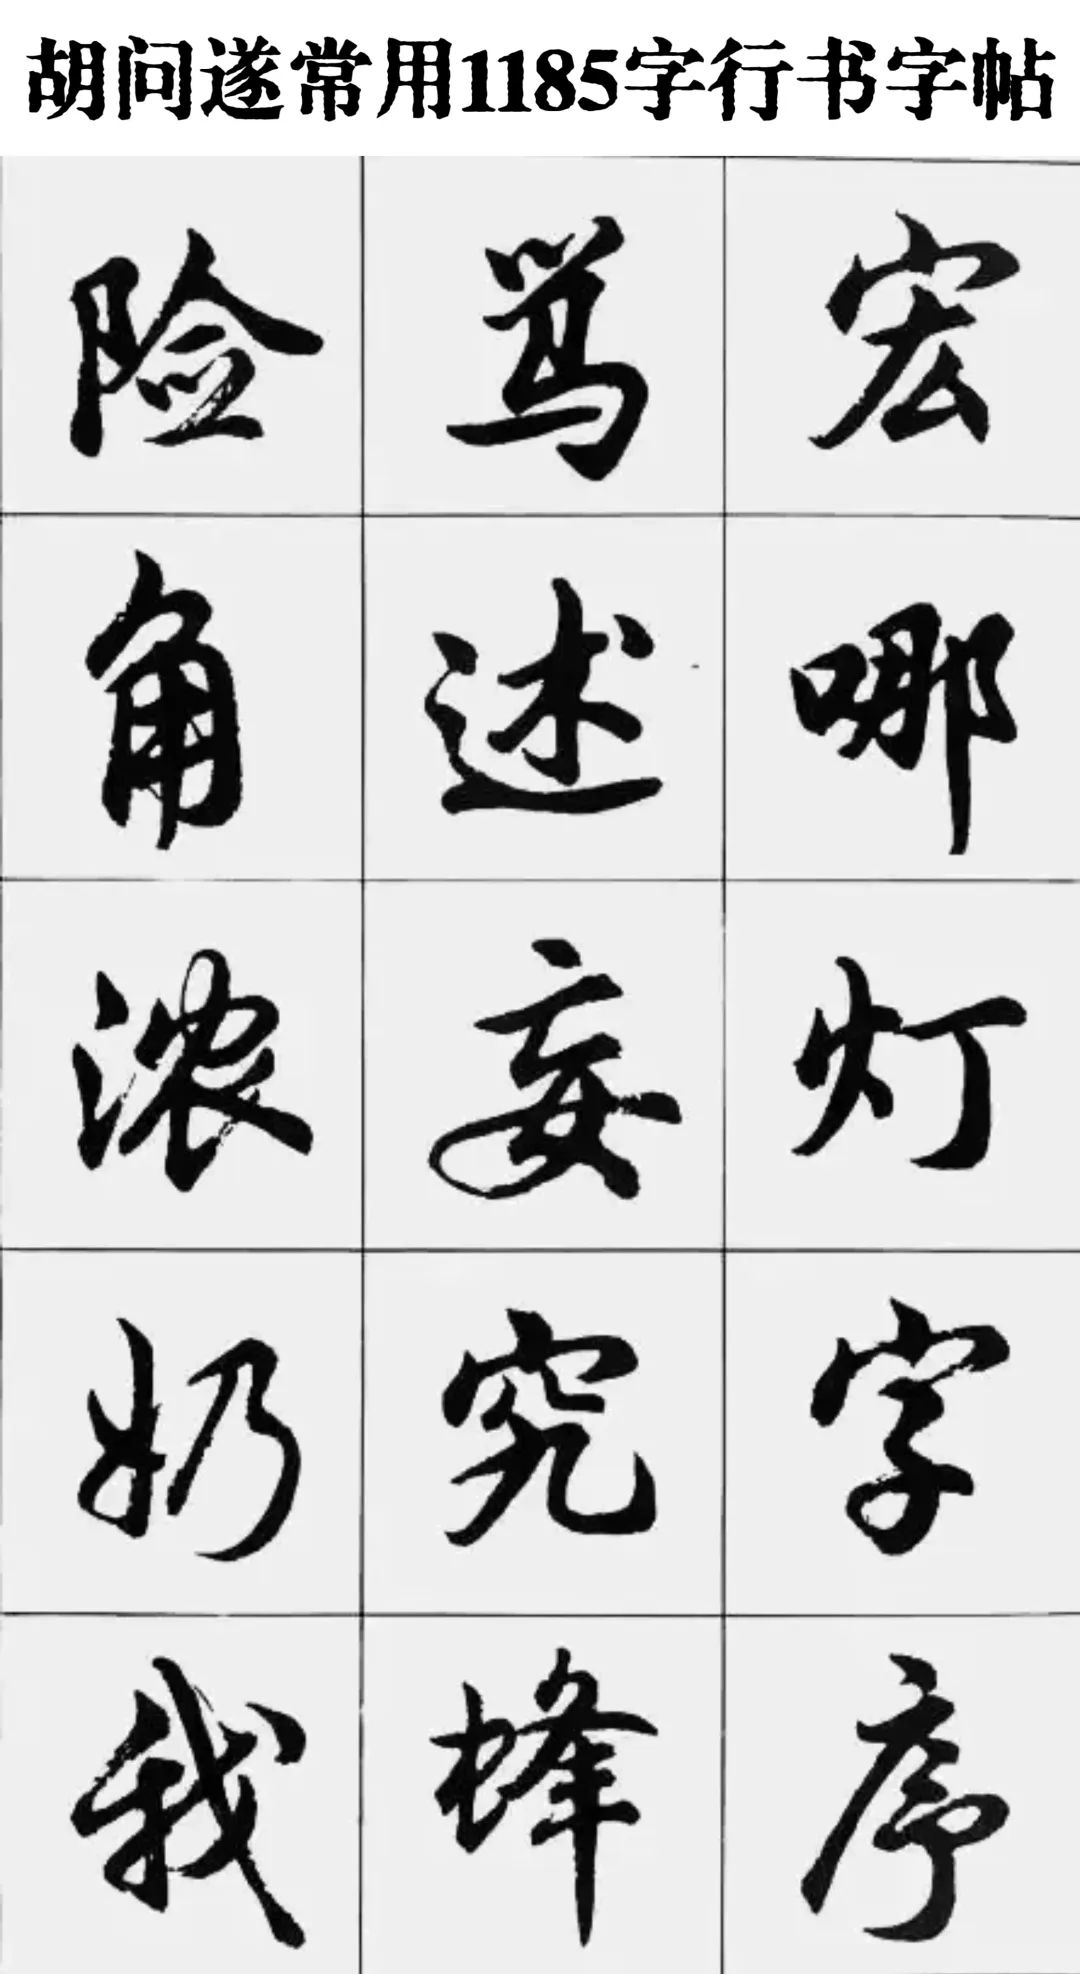 胡问遂常用1185字行书字帖
险骂宏
角述哪
浓妄灯
奶究字
我蜂序